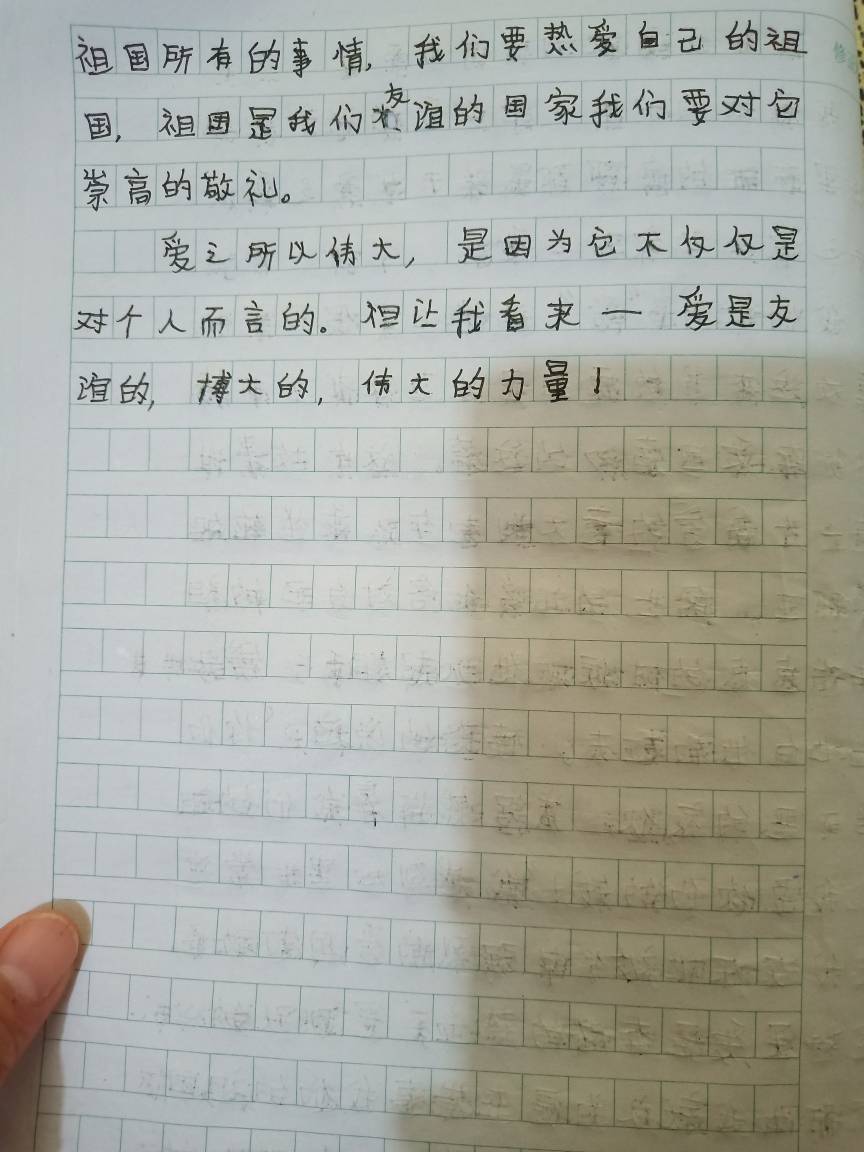 祖国所有的事情，我们要热爱自己的祖
国，祖国是我们友谊的国家我们要对它
崇高的敬礼。
爱之所以伟大，是因为它不仅仅是
对个人而言的。但让我看来一爱是友
谊的，博大的，伟大的力量！